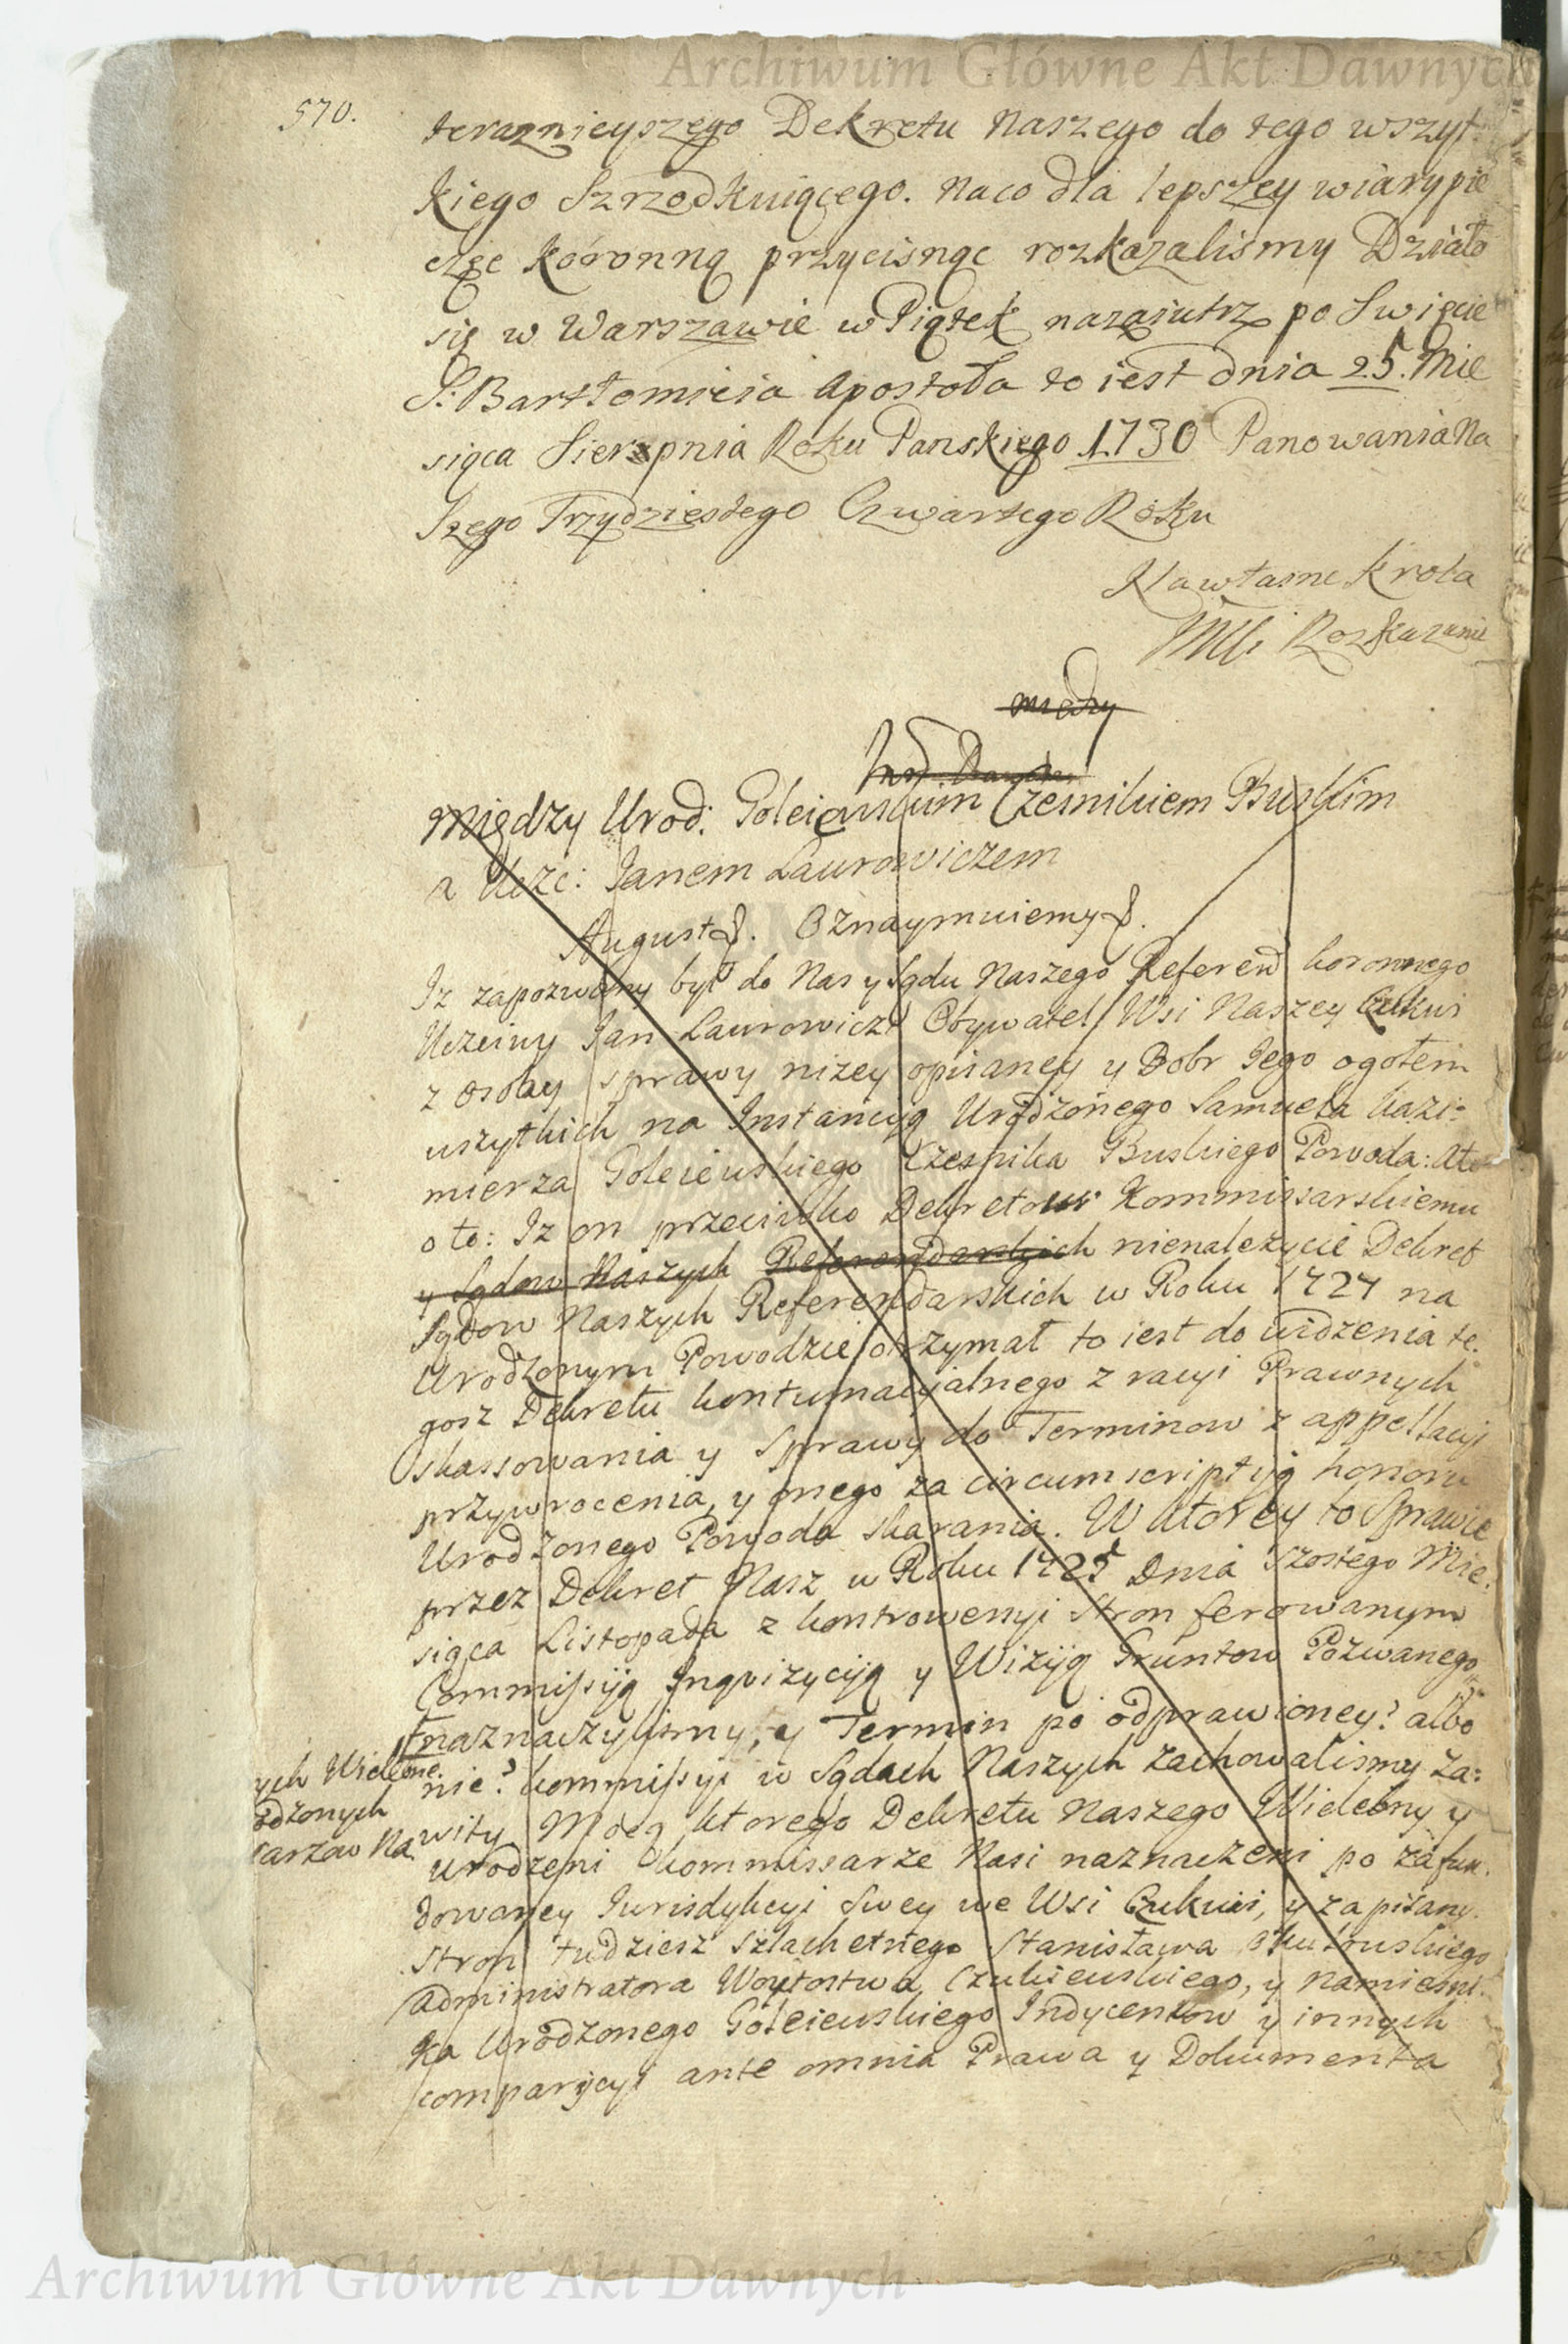 Archiwum Główne Akt Dawnych
570.
teraznieyszego Dekretu Naszego do tego wszyt
kiego Szrzodkuiącego. Naco dla lepszey wiary pie
częc koronną przycisnąc rozkazalismy Działo
się w Warszawie w Piątek nazaiutrz po Swięcie
S: Bartłomieia Apostoła to iest dnia 25. Mie
siąca Sierpnia Roku Panskiego 1730 Panowania Na
szego Trzydziestego Czwartego Roku
Na własne Krola
Mci Rozkazanie
między
Między Urod: Goleiewskim Czesnikiem Buskim
a Ucżc: Janem Laurowiczem
August. Oznaymuiemy.
Iz zapozwany był do Nas y Sądu Naszego Referend koronnego
Uczciwy Jan Laurowicz Obywatel Wsi Naszey Czukwi
z osoby sprawy nizey opisaney y Dobr Jego ogołem
wszytkich na Instancyą Urodzonego Samuela Kazi:
mierza Goleiewskiego Czesnika Buskiego Powoda: Ato
o to: Iz on przeciwko Dekretowi Kommissarskiemu
y Sądow Naszych Referendarskich nienalezycie Dekret
Sądow Naszych Referendarskich w Roku 1727 na
Urodzonym Powodzie otrzymał to iest do widzenia te:
gosz Dekretu kontumacyjalnego z racyi Prawnych
skassowania y Sprawy do Terminow z appellacyi
przywrocenia, y onego za circumscriptyą honoru
Urodzonego Powoda skarania. W ktorey to Sprawie
przez Dekret Nasz w Roku 1728 Dnia Szostego Mie:
siąca Listopada z kontrowersyi Stron ferowanym
Commissyą Inqvizycyją y Wizyją Gruntow Pozwanego
naznaczylismy, y Termin po odprawioney? albo
nie? kommissyi w Sądach Naszych zachowalismy za:
wity Mocą ktorego Dekretu Naszego Wielebny y
ych Wielebne
odzonych
sarzow Na
Urodzeni kommissarze Nasi naznaczeni po zafun:
dowaney Jurisdykcyi Swey we Wsi Czukwi, y zapisaney
Stron tudziesz szlachetnego Stanisława
Administratora Woytostwa Czukiewskiego, y Namiesni:
ka Urodzonego Goleiewskiego Indycentow y innych
comparycyi ante omnia Prawa y Dokumenta
Archiwum Główne Akt Dawnych